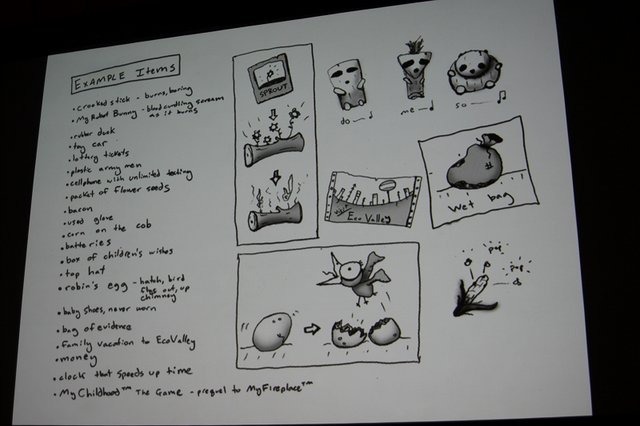 EXAMPLE Items
• crooked stick - burns, boring
• My Robot Bunny - bloodcurdling scream
as it burns
• rubber duck
• toy car
• lottery tickets
• plastic army men
• cellphone with unlimited texting
• packet of flower seeds
• bacon
• used glove
• corn on the cob
• batteries
• box of children's wishes
• top hat
• robin's egg - hatch, bird
flys out, up
chimney
• baby shoes, never worn
• bag of evidence
• family vacation to EcoValley
• money
• clock that speeds up time
• My Childhood™ The Game - prequel to MyFireplace™
SPROUT
do
me
so
Eco Valley
Wet bag
pop
pop